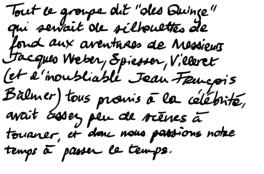 Tout ce groupe dit "des Quinze"
qui servait de silhouettes de
fond aux aventures de Messieurs
Jacques Weber, Spiesser, Villeret
(et d'inoubliable Jean-François
Balmer) tous promis à la célébrité,
avait assez peu de scènes à
tourner, et donc nous passions notre
temps à passer le temps.